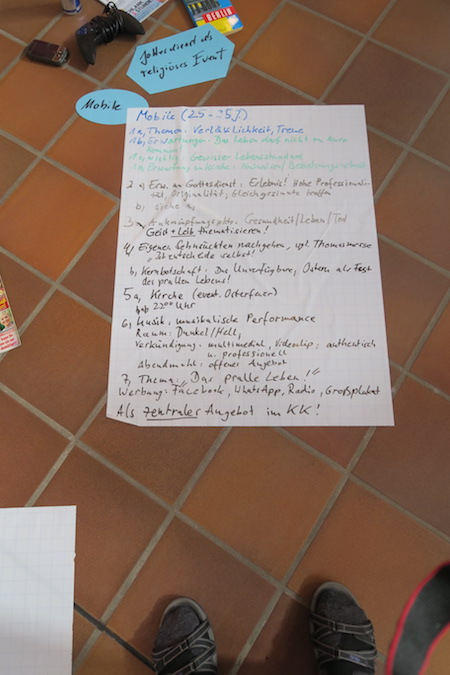 BERLIN
Gottesdienst als
religiöses Event
Mobile
Mobile (25 - 35 J.)
1a, Themen: Verlässlichkeit, Treue
1b, Erwartungen: Das Leben darf nicht zu kurz
kommen
1c, wichtig: Gewisser Lebensstandard
1d, Erwartung an Kirche:
2 a, Erw. an Gottesdienst: Erlebnis! Hohe Professionali-
tät, Originalität; Gleichgesinnte treffen
b, siehe
3, Anknüpfungspkte: Gesundheit/Leben/Tod
Geist + Leib thematisieren!
4, Eigenen Sehnsüchten nachgehen, vgl. Thomasmesse
"Ich entscheide selbst!"
b, Kernbotschaft: Das Unverfügbare, Ostern als Fest
des prallen Lebens!
5a, Kirche (event. Osterfeuer)
b, ab 22:00 Uhr
6, Musik: musikalische Performance
Raum: Dunkel/Hell,
Verkündigung: multimedial, Videoclip; authentisch
u. professionell
Abendmahl: offenes Angebot
7, Thema: "Das pralle Leben!"
Werbung: Facebook, WhatsApp, Radio, Großplakat
Als zentrales Angebot im KK!